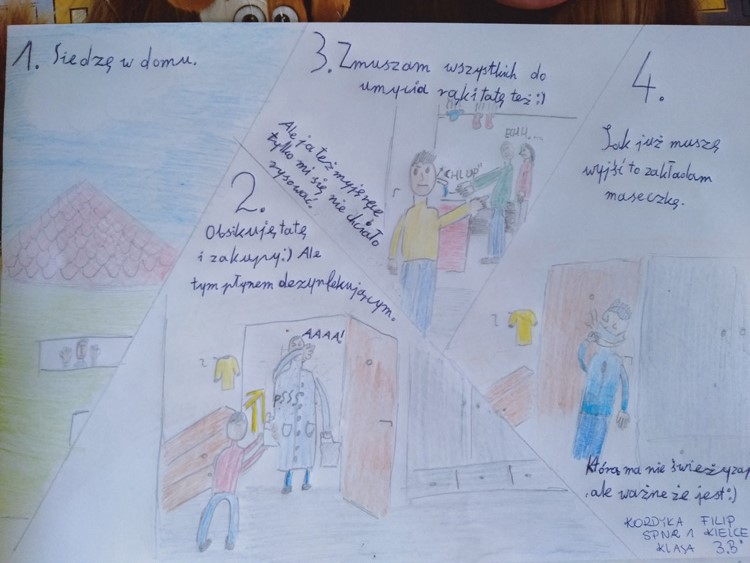 1. Siedzę w domu.
2.
Obsikuję tatę
i zakupy:) Ale
tym płynem dezynfekującym.
AAAA!
PSSS
3. Zmuszam wszystkich do
umycia rąk i tatę też:)
Ale ja też myję ręce
tylko mi się nie chciało
rysować.
"CHLUP"
ECHH...
4.
Jak już muszę
wyjść to zakładam
maseczkę.
Która ma nie świeży zap
,ale ważne że jest:)
KORDYKA FILIP
SPNR 1 KIELCE
KLASA 3.B